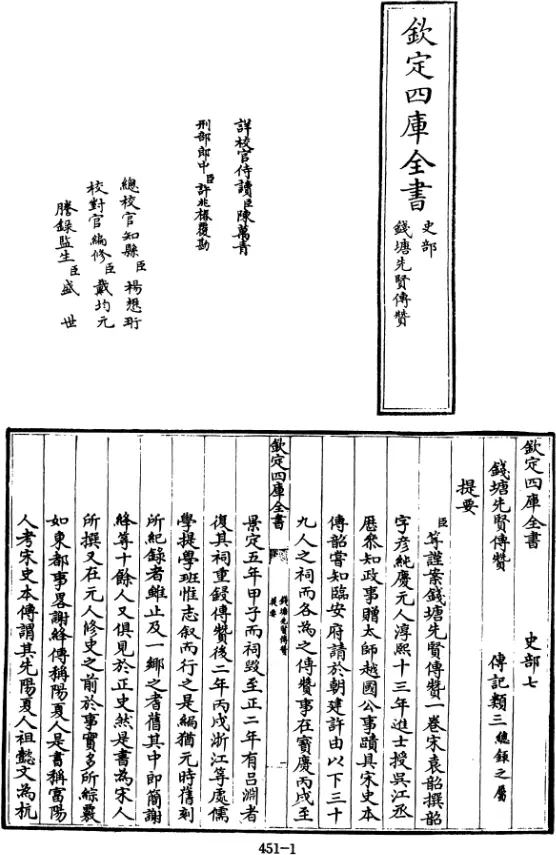 欽定四庫全書
史部
錢塘先賢傳贊
詳校官侍讀臣陳萬青
刑部郎中臣許兆椿覆勘
總校官知縣臣楊懋珩
校對官編修臣戴均元
謄錄監生臣盛世
欽定四庫全書
史部七
錢塘先賢傳贊
傳記類三總錄之屬
提要
臣等謹案錢塘先賢傳贊一卷宋袁韶撰韶
字彥純慶元人淳熙十三年進士授吳江丞
歷叅知政事贈太師越國公事蹟具宋史本
傳韶嘗知臨安府請於朝建許由以下三十
九人之祠而各為之傳贊事在寳慶丙戌至
欽定四庫全書
錢塘先賢傳贊
提要
景定五年甲子而祠毀至正二年有呂淵者
復其祠重録傳贊後二年丙戌浙江等處儒
學提學班惟志叙而行之是編猶元時舊刻
所紀録者雖止及一鄉之耆舊其中即簡謝
絳等十餘人又俱見於正史然是書為宋人
所撰又在元人修史之前於事實多所綜覈
如東都事畧謝絳傳稱陽夏人是書稱富陽
人考宋史本傳謂其先陽夏人祖懿文為杭
451-1